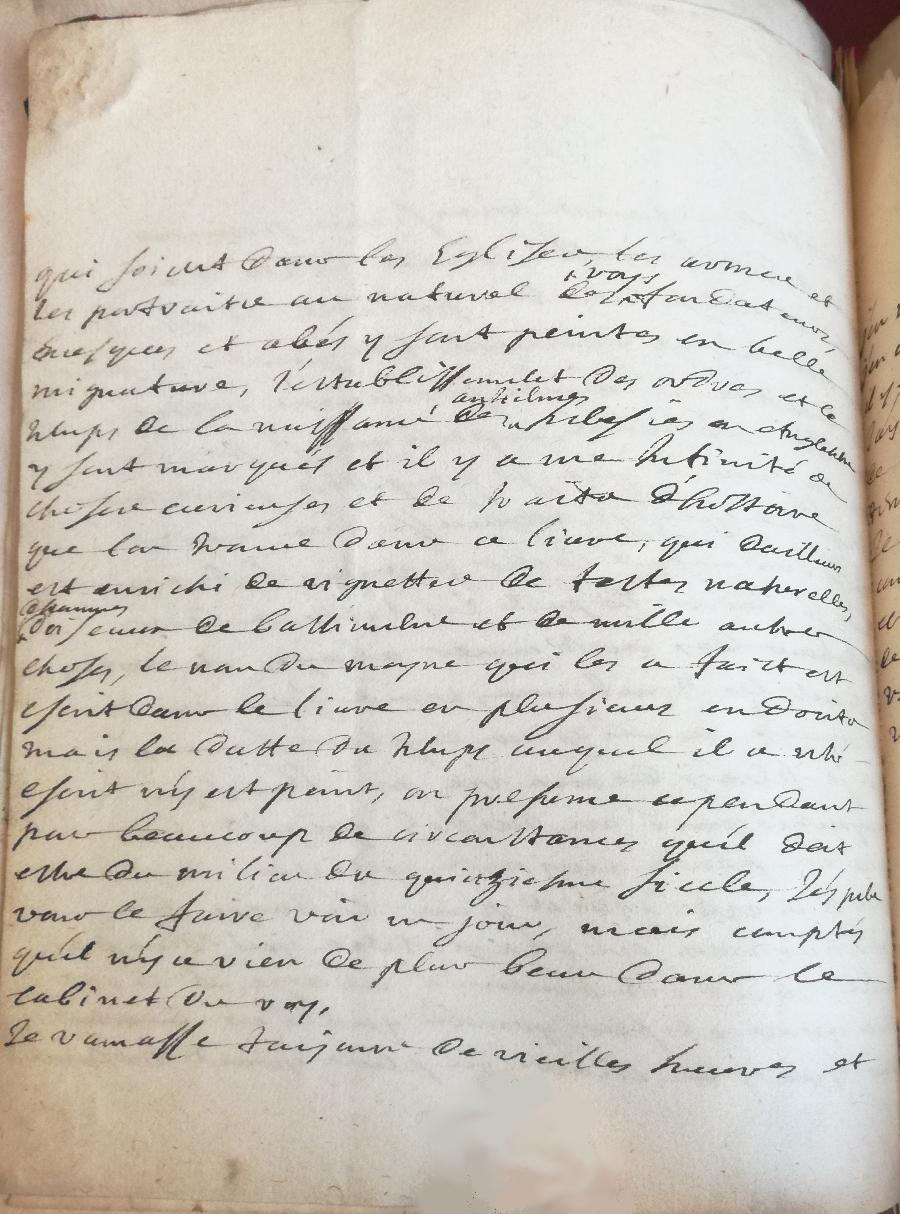 qui soient dans les Eglises, les armes et
les portraits au naturel des roys, fondateurs
euesques et abés y sont peintes en belle
mignature, l'establissement des ordres et le
temps de la naissance des anciennes en Angleterre
y sont marqués et il y a une Infinité de
choses curieuses et de traits d'histoire
que lon trouue dans ce liure, qui dailleurs
est enrichi de vignettes de testes naturelles,
d'oiseaux de bastiments et de mille autres
choses, le nom du moyne qui les a faict est
escrit dans le liure en plusieurs endroits
mais la datte du temps auquel il a esté
escrit n'y est point, on presume cependant
par beaucoup de circonstances qu'il doit
estre du milieu du quinziesme siecle, J'espere
vous le faire voir un jour, mais comptés
qu'il n'y a rien de plus beau dans le
cabinet du roy.
Je ramasse toujours de vieilles heures et